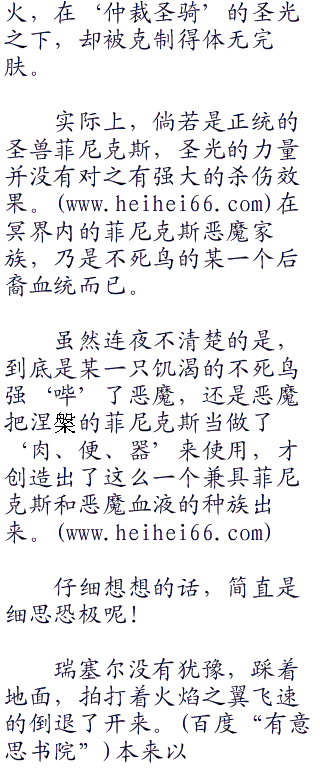 火，在‘仲裁圣骑’的圣光
之下，却被克制得体无完
肤。
实际上，倘若是正统的
圣兽菲尼克斯，圣光的力量
并没有对之有强大的杀伤效
果。(www.heihei66.com)在
冥界内的菲尼克斯恶魔家
族，乃是不死鸟的某一个后
裔血统而已。
虽然连夜不清楚的是，
到底是某一只饥渴的不死鸟
强‘哔’了恶魔，还是恶魔
把涅槃的菲尼克斯当做了
‘肉、便、器’来使用，才
创造出了这么一个兼具菲尼
克斯和恶魔血液的种族出
来。(www.heihei66.com)
仔细想想的话，简直是
细思恐极呢！
瑞塞尔没有犹豫，踩着
地面，拍打着火焰之翼飞速
的倒退了开来。(百度“有意
思书院”)本来以